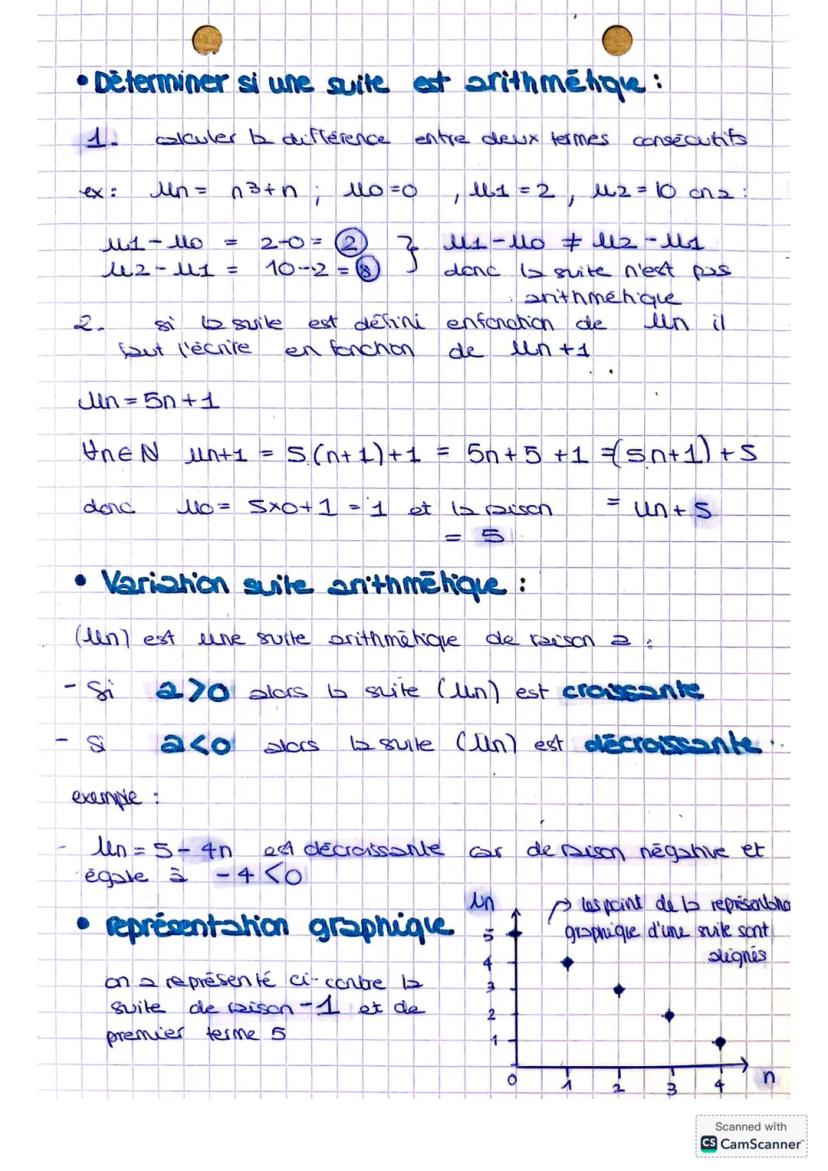 • Déterminer si une suite est arithmétique :
1. calculer la différence entre deux termes consécutifs
ex : Un = n³+n ; U0=0 , U1=2 , U2=10 on a :
U1-U0 = 2-0 = 2 } U1-U0 ≠ U2-U1
U2-U1 = 10-2 = 8 donc la suite n'est pas
arithmétique
2. si la suite est défini en fonction de Un il
faut l'écrire en fonction de Un+1
Un = 5n+1
∀n∈N Un+1 = 5(n+1)+1 = 5n+5+1 =(5n+1)+5
donc U0 = 5x0+1 = 1 et la raison = Un+5
= 5
• Variation suite arithmétique :
(Un) est une suite arithmétique de raison a :
- Si a>0 alors la suite (Un) est croissante
- Si a<0 alors la suite (Un) est décroissante.
exemple :
- Un = 5-4n est décroissante car de raison négative et
égale à -4<0
• représentation graphique
on a représenté ci-contre la
suite de raison -1 et de
premier terme 5
Un
→ les point de la représentation
graphique d'une suite sont
alignés
5
4
3
2
1
0 1 2 3 4 n
Scanned with
CS CamScanner